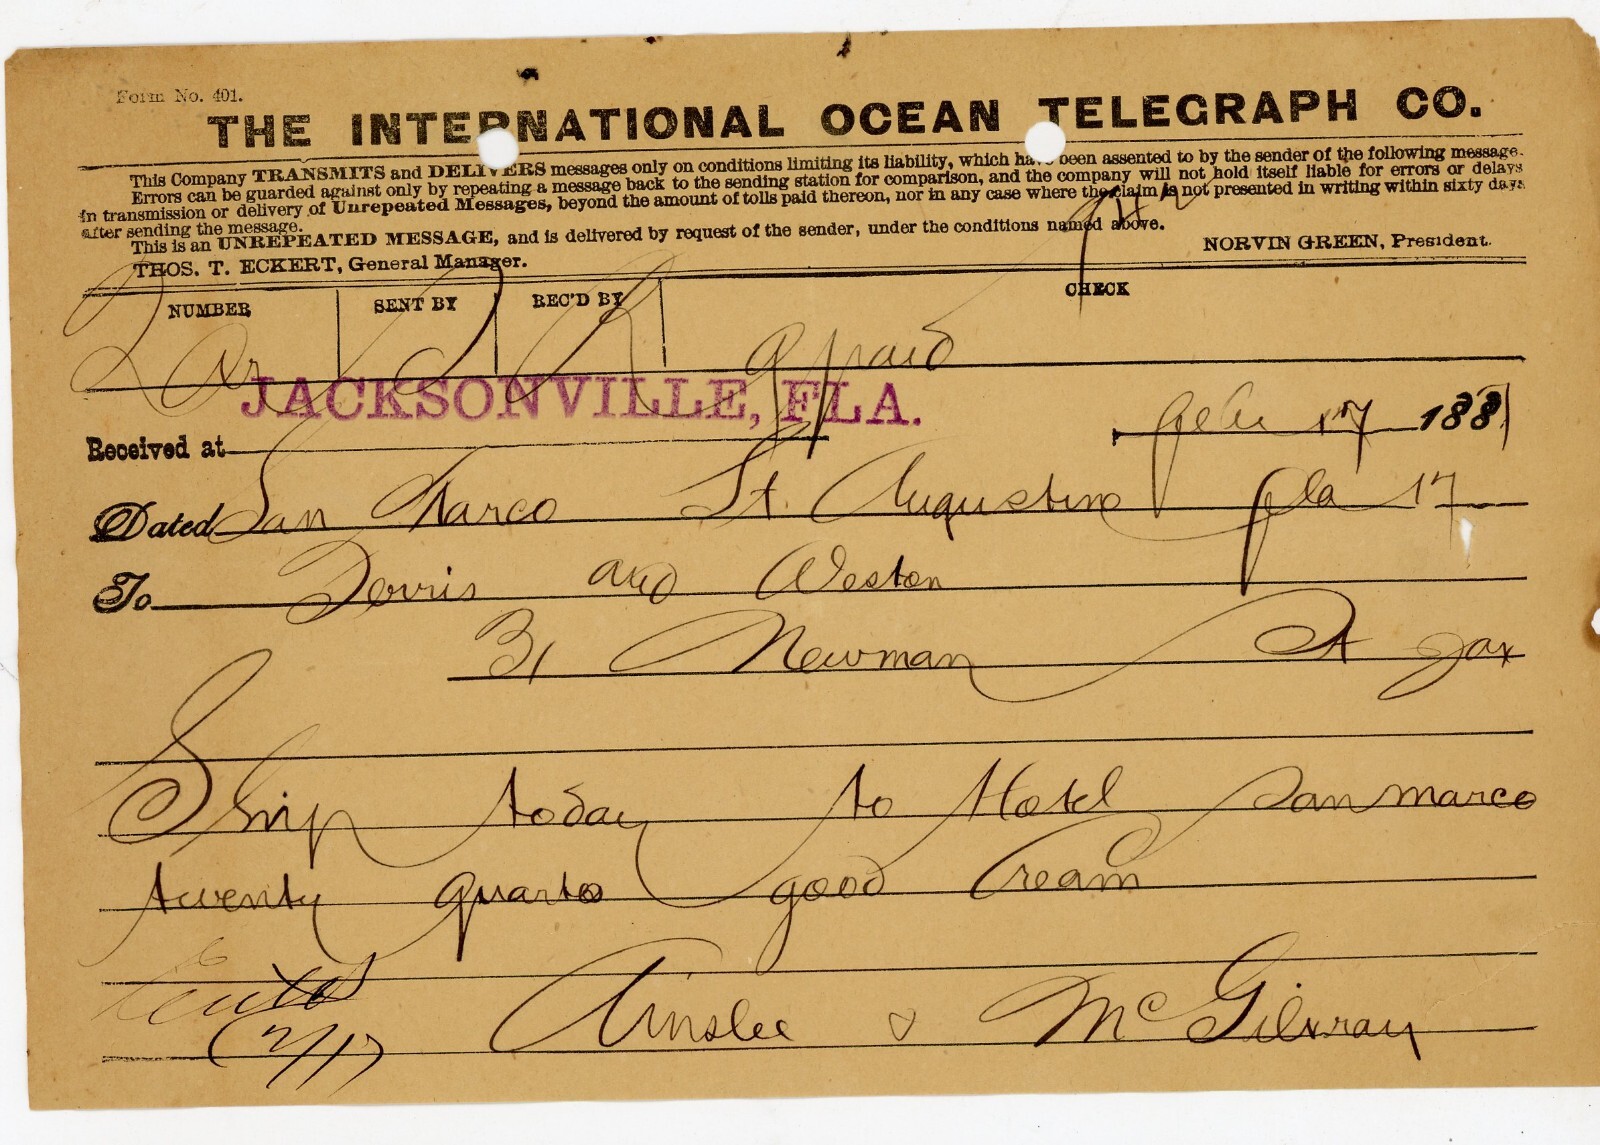 Form No. 401.
THE INTERNATIONAL OCEAN TELEGRAPH CO.
This Company TRANSMITS and DELIVERS messages only on conditions limiting its liability, which have been assented to by the sender of the following message.
Errors can be guarded against only by repeating a message back to the sending station for comparison, and the company will not hold itself liable for errors or delays
in transmission or delivery of Unrepeated Messages, beyond the amount of tolls paid thereon, nor in any case where the claim is not presented in writing within sixty days
after sending the message.
This is an UNREPEATED MESSAGE, and is delivered by request of the sender, under the conditions named above.
THOS. T. ECKERT, General Manager. NORVIN GREEN, President.
NUMBER SENT BY REC'D BY CHECK
9 paid
JACKSONVILLE, FLA.
Received at Feb 17 188
Dated San Marco St. Augustine Fla 17
To and Weston
31 Newman St Jax
Ship today to Hotel San Marco
twenty quarts good Cream
Ainslee & McGilvray
2/17